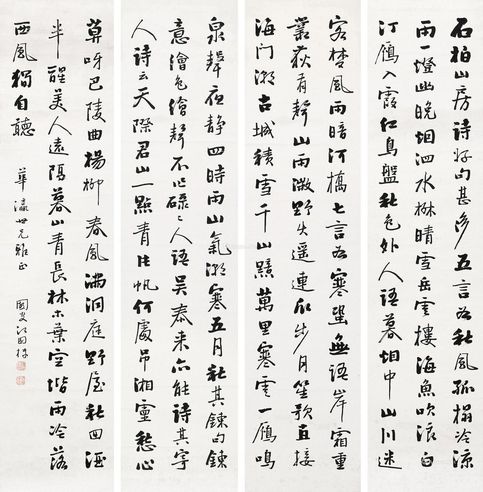 石柏山房诗好句甚多五言如秋風孤榻冷涼
雨一燈幽晚烟泗水樹晴雪岳雲樓海魚吹浪白
汀鴈入霞紅鳥盤秋色外人語暮烟中山川迷
客楚風雨暗河橋七言如寒蛩無語岸霜重
叢荻有聲山雨微野火遥連人步月笙歌直接
海门潮古城積雪千山踏萬里寒雲一鴈鳴
泉聲夜静四時雨山氣潮寒五月秋其鍊句鍊
意繪色繪聲不必碌碌人語吴泰来亦能诗其寄
人诗云天際君山一點青片帆何處吊湘靈愁心
莫听巴陵曲楊柳春風满洞庭野屋秋回酒
半醒美人遠隔暮山青長林木葉空堦雨冷落
西風獨自聽
華瀛世兄雅正